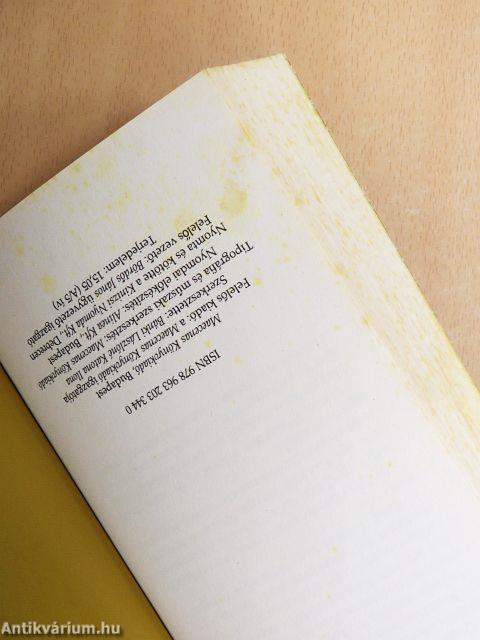 ISBN 978 963 203 344 0
Maecenas Könyvkiadó, Budapest
Felelős kiadó: a Maecenas Könyvkiadó igazgatója
Szerkesztette: Lászlóné Katona Ilona
Tipográfia és műszaki szerkesztés: Maecenas Könyvkiadó
Nyomdai előkészítés: Alinea Kft., Budapest
Nyomta és kötötte a Kinizsi Nyomda Kft., Debrecen
Felelős vezető: Bördős János ügyvezető igazgató
Terjedelem: 15,05 (A/5 ív)
Antikvárium.hu